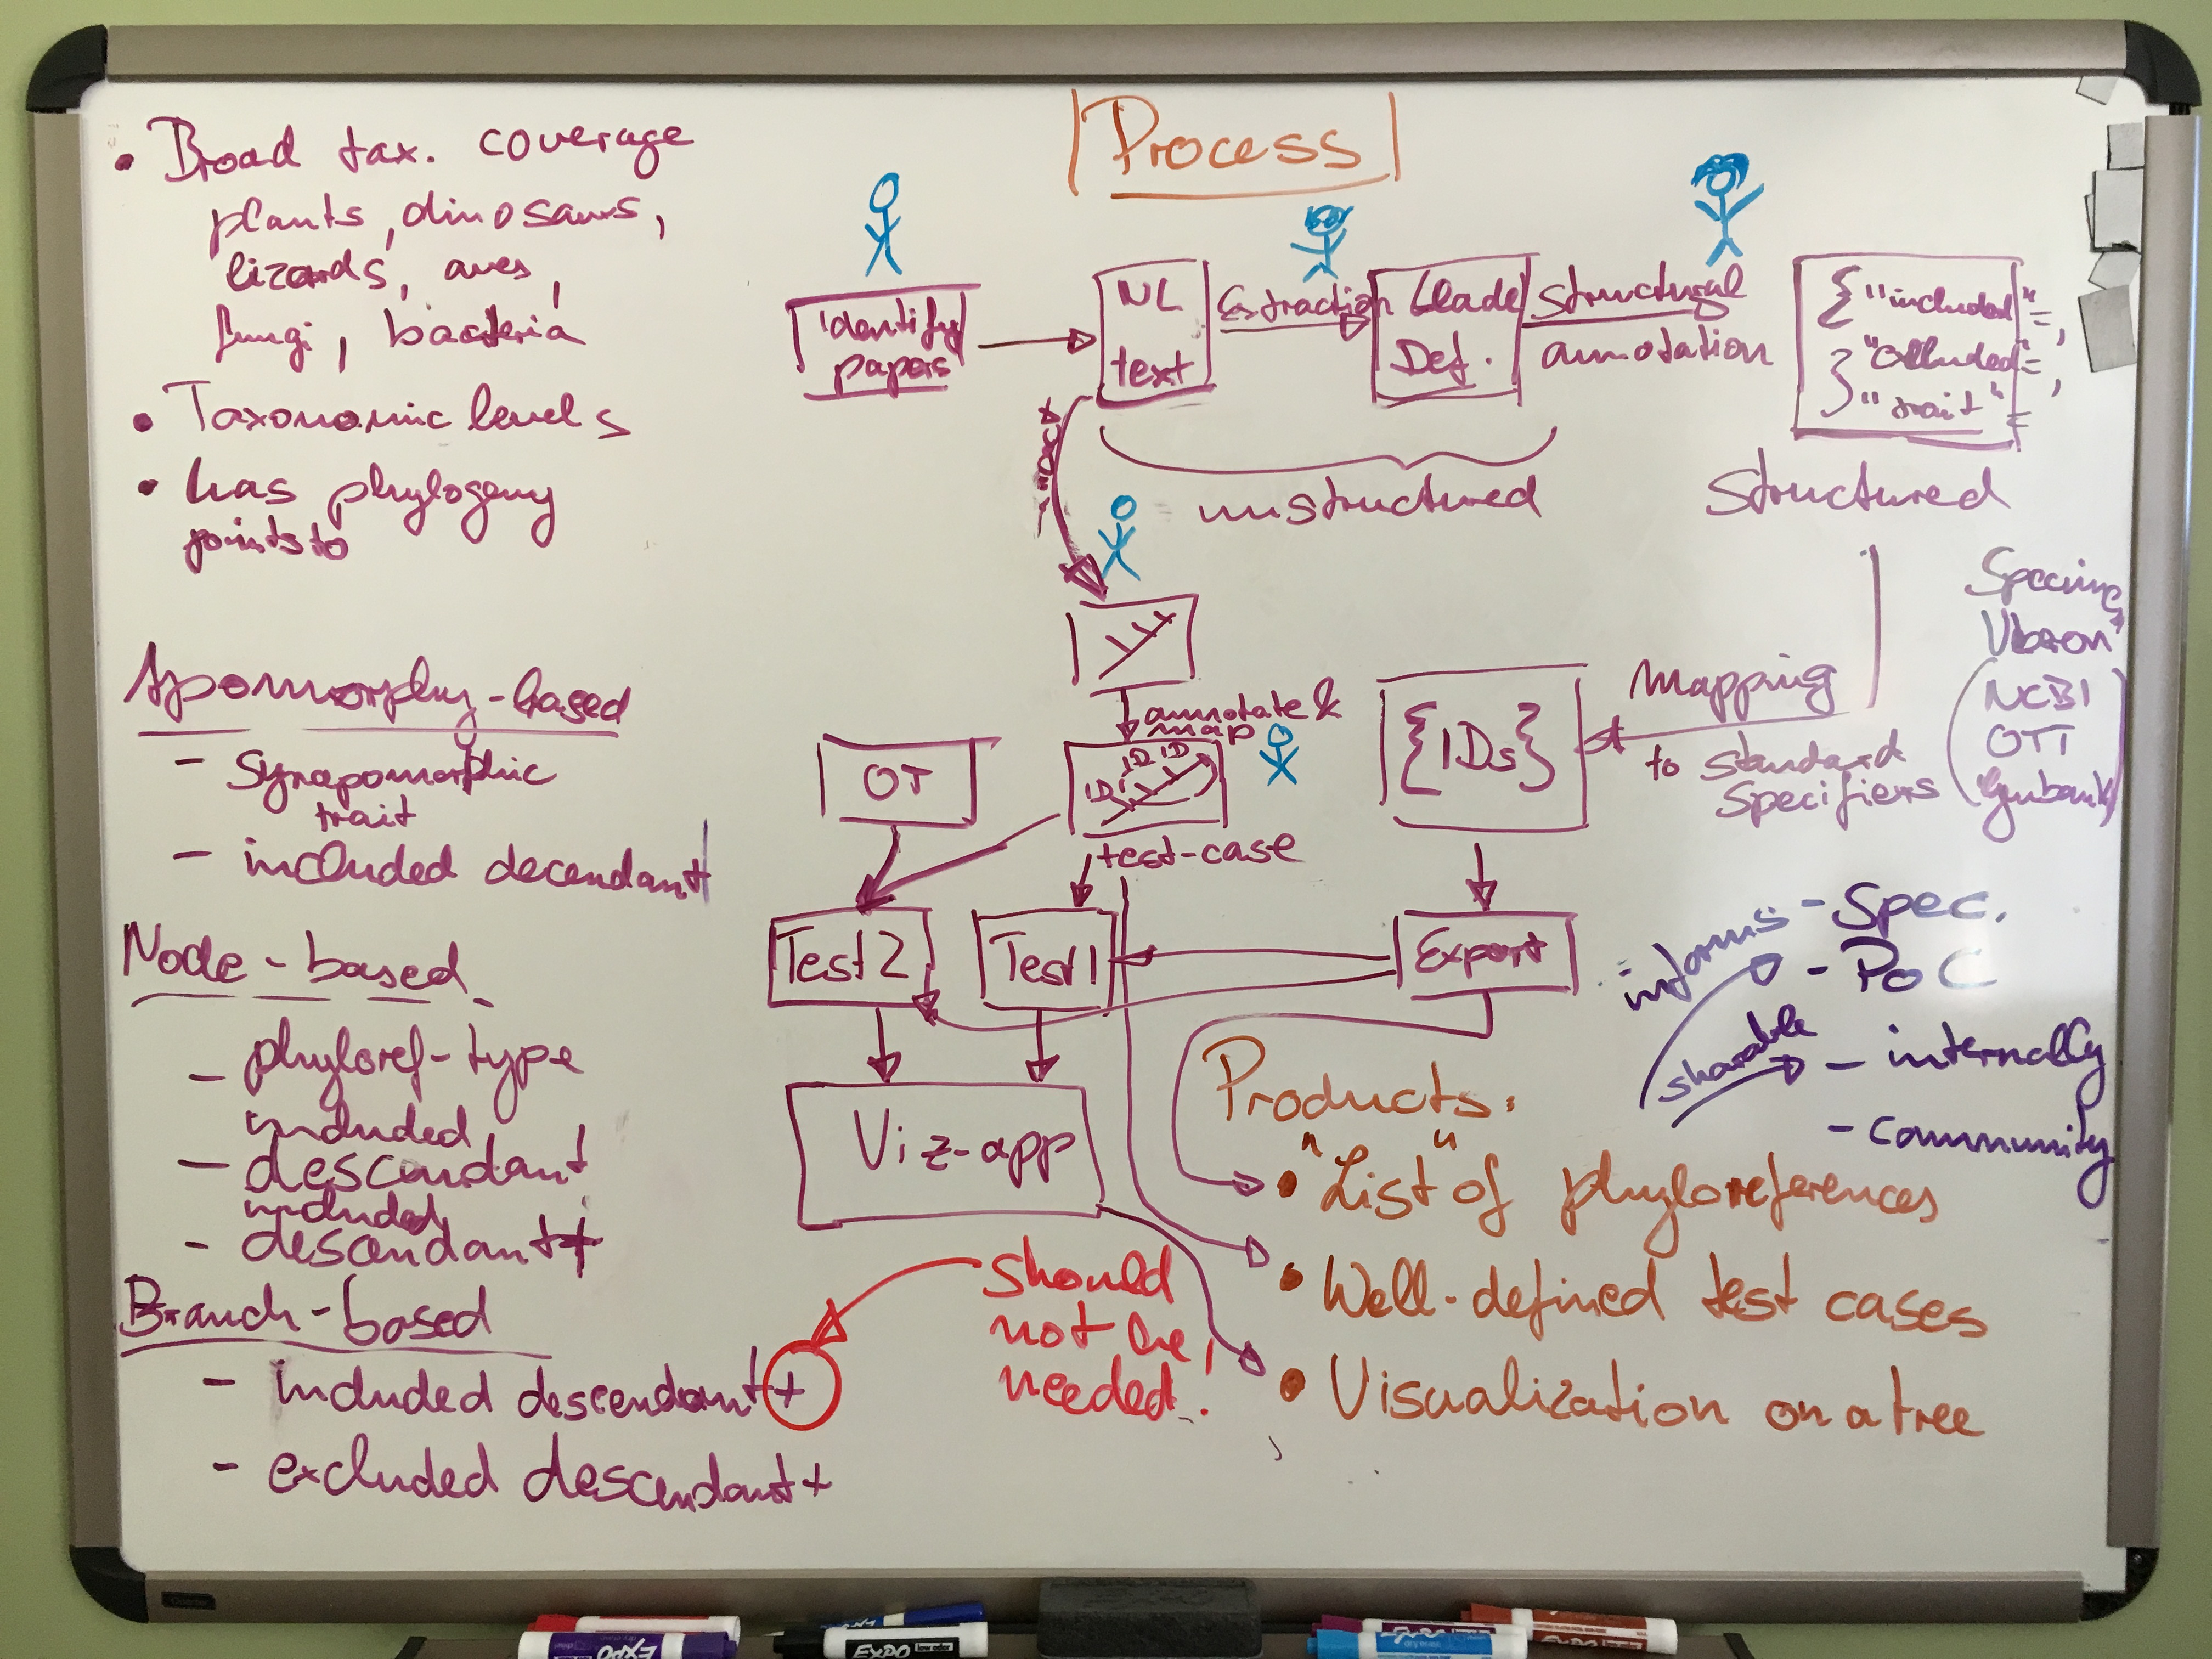 Process
• Broad tax. coverage
plants, dinosaurs,
lizards, aves,
fungi, bacteria
• Taxonomic levels
• has phylogeny
points to
Apomorphy-based
- Synapomorphic
trait
- included decendant
Node-based
- phyloref-type
included
- descendant
included
- descendant+
Branch-based
- included descendant+
- excluded descendant+
should
not be
needed!
identify
papers
NL
text
Extraction
Clade
Def.
structural
annotation
{ "included" = ,
"excluded" = ,
} "trait" =
unstructured
structured
annotate &
map
ID ID ID
OT
test-case
{IDs}
mapping
to standard
specifiers
NCBI
OTT
Genbank
Test 2
Test 1
Export
Viz-app
informs - Spec.
- PoC
sharable
- internally
- community
Products:
• "List" of phyloreferences
• Well-defined test cases
• Visualization on a tree
EXPO
EXPO